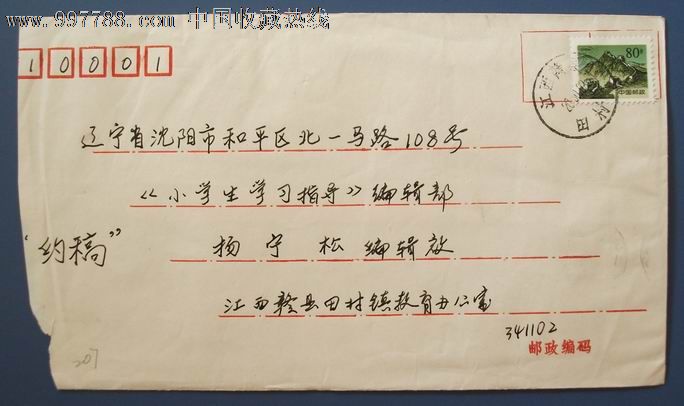 www.997788.com 中国收藏热线
110001
80分
中国邮政
江西
田村
辽宁省沈阳市和平区北一马路108号
《小学生学习指导》编辑部
"约稿"
杨宁松编辑收
江西赣县田村镇教育办公室
341102
邮政编码
207